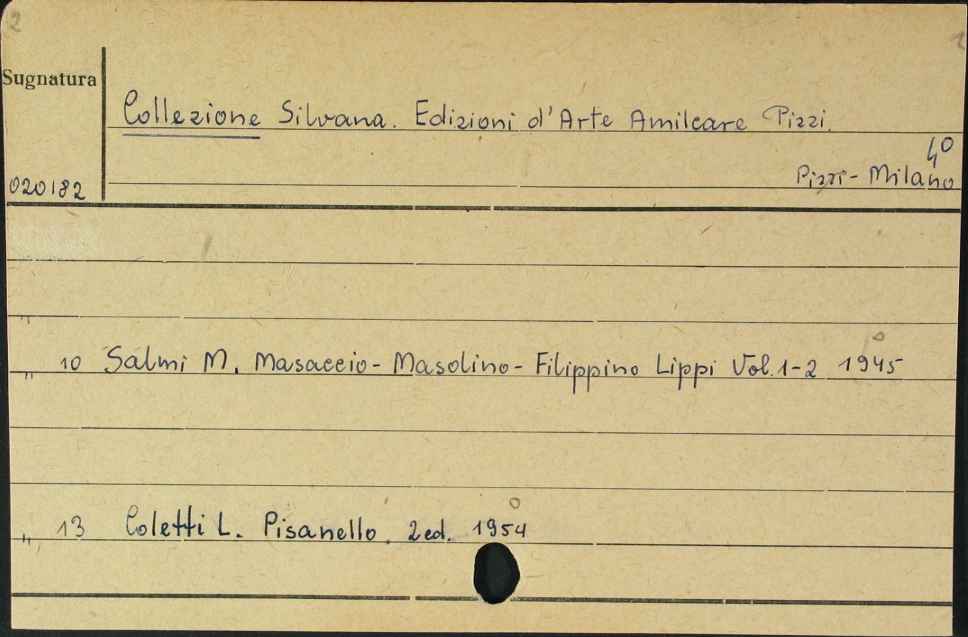 2
Sugnatura
Collezione Silvana. Edizioni d'Arte Amilcare Pizzi.
4º
020182
Pizzi - Milano
"
" 10 Salmi M. Masaccio - Masolino - Filippino Lippi Vol. 1-2 1945
" 13 Coletti L. Pisanello. 2 ed. 1954